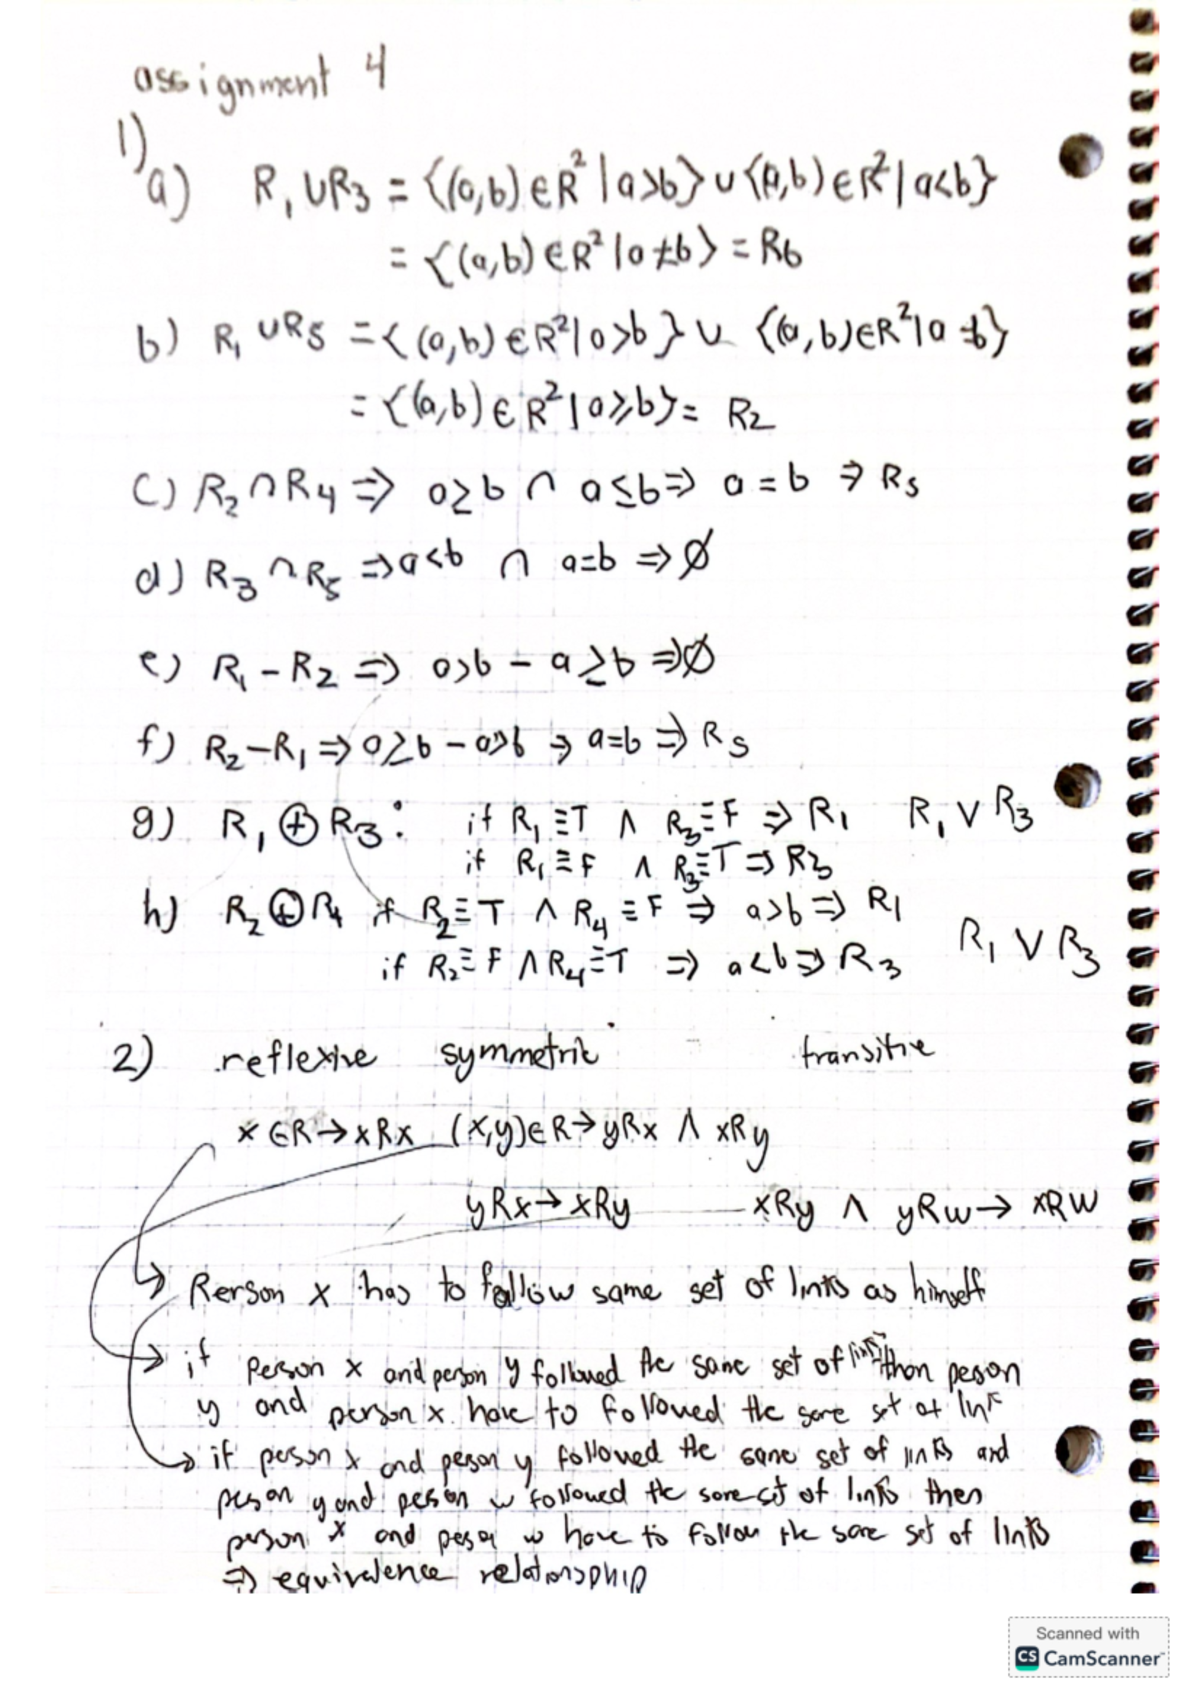 assignment 4
1)
a) R₁ ∪ R₃ = {(a,b) ∈ R² | a>b} ∪ {(a,b) ∈ R² | a<b}
= {(a,b) ∈ R² | a ≠ b} = R6
b) R₁ ∪ R5 = {(a,b) ∈ R² | a>b} ∪ {(a,b) ∈ R² | a = b}
= {(a,b) ∈ R² | a ≥ b} = R2
c) R₂ ∩ R4 ⇒ a ≥ b ∩ a ≤ b ⇒ a = b ⇒ R5
d) R3 ∩ R5 ⇒ a<b ∩ a=b ⇒ ∅
e) R₁ - R2 ⇒ a>b - a ≥ b ⇒ ∅
f) R2 - R₁ ⇒ a ≥ b - a>b ⇒ a=b ⇒ R5
g) R₁ ⊕ R3: if R₁ ≡ T ∧ R3 ≡ F ⇒ R₁ R₁ ∨ R3
if R₁ ≡ F ∧ R3 ≡ T ⇒ R3
h) R2 ⊕ R4 if R2 ≡ T ∧ R4 ≡ F ⇒ a>b ⇒ R₁
if R2 ≡ F ∧ R4 ≡ T ⇒ a<b ⇒ R3 R₁ ∨ R3
2) reflexive symmetric transitive
x ∈ R → xRx (x,y) ∈ R → yRx ∧ xRy
yRx → xRy xRy ∧ yRw → xRw
Rerson x has to follow same set of links as himself
if person x and person y followed the same set of links then person
y and person x have to followed the same set of link
if person x and person y followed the same set of links and
person y and person w followed the same set of links then
person x and person w have to follow the same set of links
⇒ equivalence relationship
Scanned with
CS CamScanner